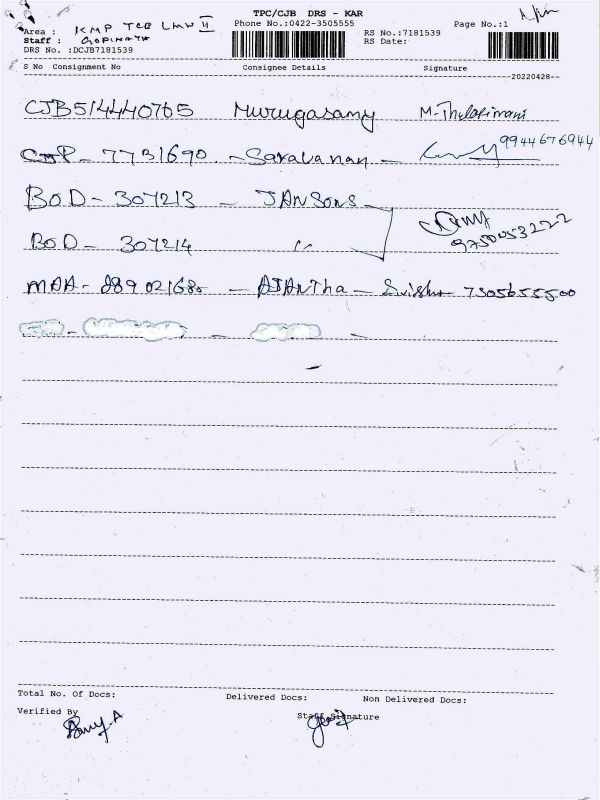 TPC/CJB DRS - KAR
Phone No.:0422-3505555 Page No.:1
Area : KMP TCB LMW II RS No.:7181539
Staff : GOPINATH RS Date:
DRS No. :DCJB7181539
S No Consignment No Consignee Details Signature
20220428
CJB514440765 Murugasamy M.Thulasimani
7731690 - Saravanan - 9944676944
BOD - 307213 - JANSONS
BOD - 307214 〃 9750053222
MAA - - AJANTHA - 7305655500
Total No. Of Docs: Delivered Docs: Non Delivered Docs:
Verified By Staff Signature